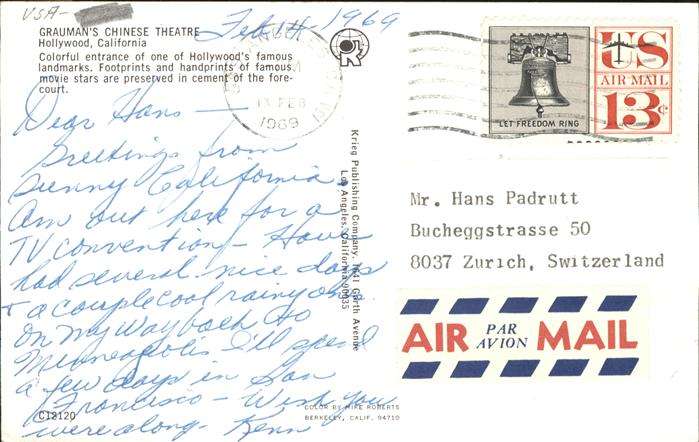 USA-
GRAUMAN'S CHINESE THEATRE
Hollywood, California
Colorful entrance of one of Hollywood's famous
landmarks. Footprints and handprints of famous
movie stars are preserved in cement of the fore-
court.
Feb 14, 1969
Dear Hans —
Greetings from
sunny California.
Am out here for a
TV convention - Have
had several nice days
+ a couple cool rainy ones
On my way back to
Minneapolis I'll spend
a few days in San
Francisco - Wish you
were along - Kenn
C12120
COLOR BY MIKE ROBERTS
BERKELEY, CALIF. 94710
Krieg Publishing Company, 1641 Garth Avenue
Los Angeles, California 90035
FEB
1969
LET FREEDOM RING
US
AIR MAIL
13c
Mr. Hans Padrutt
Bucheggstrasse 50
8037 Zurich, Switzerland
AIR PAR AVION MAIL